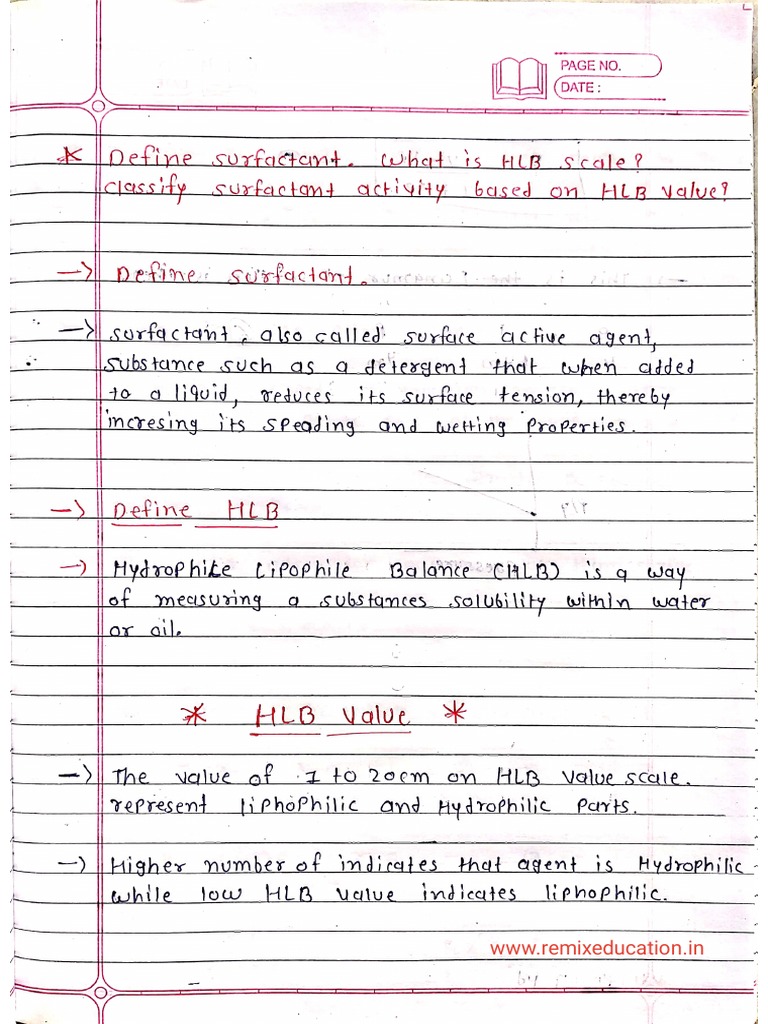 PAGE NO.
DATE :
* Define surfactant. What is HLB scale?
classify surfactant activity based on HLB value?
→ Define surfactant.
→ surfactant, also called surface active agent,
substance such as a detergent that when added
to a liquid, reduces its surface tension, thereby
incresing its speading and wetting properties.
→ Define HLB
→ Hydrophile Lipophile Balance (HLB) is a way
of measuring a substances solubility within water
or oil.
* HLB Value *
→ The value of 1 to 20cm on HLB value scale.
represent liphophilic and Hydrophilic parts.
→ Higher number of indicates that agent is Hydrophilic
while low HLB value indicates liphophilic.
www.remixeducation.in